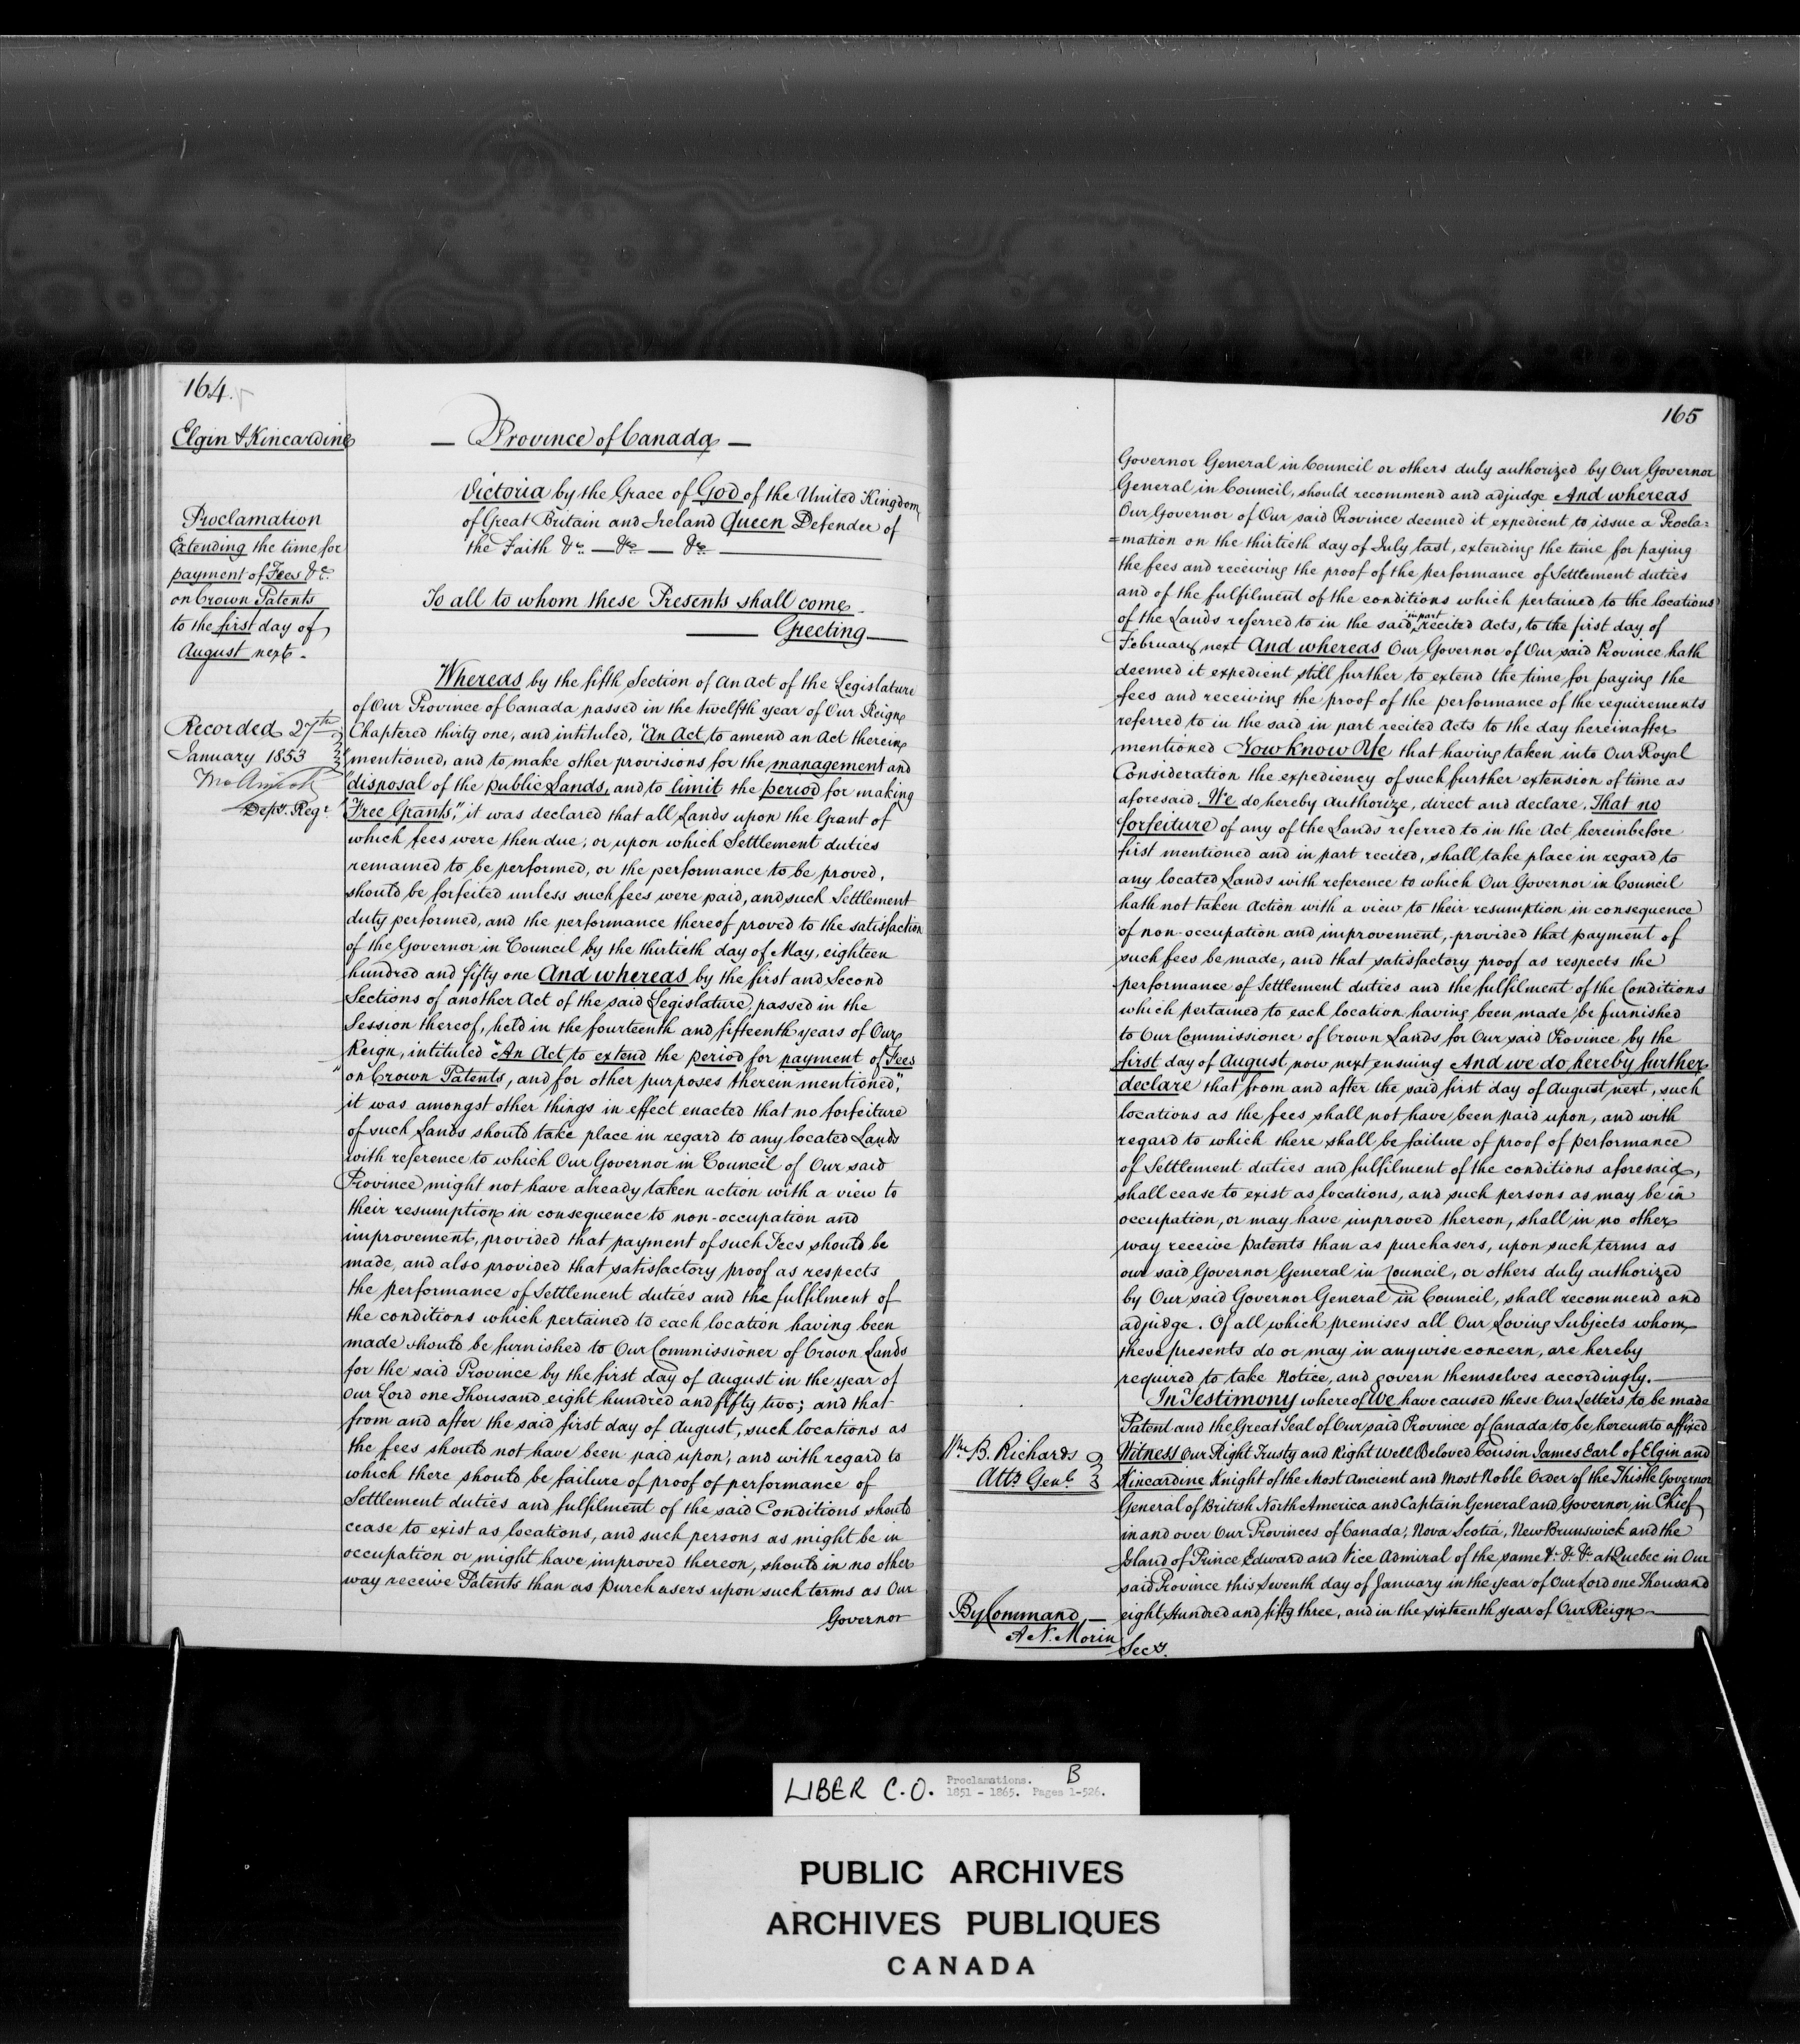 164.
Elgin & Kincardine
Proclamation
Extending the time for
payment of Fees &c.
on Crown Patents
to the first day of
August next.
Recorded 27th
January 1853
Depy. Regr
— Province of Canada —
Victoria by the Grace of God of the United Kingdom
of Great Britain and Ireland Queen Defender of
the Faith &c. — &c. — &c.
To all to whom these Presents shall come
Greeting
Whereas by the fifth Section of an Act of the Legislature
of Our Province of Canada passed in the twelfth year of Our Reign
Chaptered thirty one, and intituled, "An Act to amend an Act therein
"mentioned, and to make other provisions for the management and
"disposal of the public Lands, and to limit the period for making
"Free Grants", it was declared that all Lands upon the Grant of
which fees were then due, or upon which Settlement duties
remained to be performed, or the performance to be proved,
should be forfeited unless such fees were paid, and such Settlement
duty performed, and the performance thereof proved to the satisfaction
of the Governor in Council by the thirtieth day of May, eighteen
hundred and fifty one And whereas by the first and Second
Sections of another Act of the said Legislature, passed in the
Session thereof, held in the fourteenth and fifteenth years of Our
Reign, intituled "An Act to extend the period for payment of Fees
"on Crown Patents, and for other purposes therein mentioned",
it was amongst other things in effect enacted that no forfeiture
of such Lands should take place in regard to any located Lands
with reference to which Our Governor in Council of Our said
Province might not have already taken action with a view to
their resumption in consequence to non-occupation and
improvement, provided that payment of such Fees should be
made, and also provided that satisfactory proof as respects
the performance of Settlement duties and the fulfilment of
the conditions which pertained to each location having been
made should be furnished to Our Commissioner of Crown Lands
for the said Province by the first day of August in the year of
Our Lord one Thousand eight hundred and fifty two; and that
from and after the said first day of August, such locations as
the fees should not have been paid upon, and with regard to
which there should be failure of proof of performance of
Settlement duties and fulfilment of the said Conditions should
cease to exist as locations, and such persons as might be in
occupation or might have improved thereon, should in no other
way receive Patents than as purchasers upon such terms as Our
Governor
165
Governor General in Council or others duly authorized by Our Governor
General in Council, should recommend and adjudge And whereas
Our Governor of Our said Province deemed it expedient to issue a Procla=
=mation on the thirtieth day of July last, extending the time for paying
the fees and receiving the proof of the performance of Settlement duties
and of the fulfilment of the conditions which pertained to the locations
of the Lands referred to in the said in part recited Acts, to the first day of
February next And whereas Our Governor of Our said Province hath
deemed it expedient still further to extend the time for paying the
fees and receiving the proof of the performance of the requirements
referred to in the said in part recited Acts to the day hereinafter
mentioned Now Know Ye that having taken into Our Royal
Consideration the expediency of such further extension of time as
aforesaid. We do hereby authorize, direct and declare, That no
forfeiture of any of the Lands referred to in the Act hereinbefore
first mentioned and in part recited, shall take place in regard to
any located Lands with reference to which Our Governor in Council
hath not taken Action with a view to their resumption in consequence
of non-occupation and improvement, provided that payment of
such fees be made, and that satisfactory proof as respects the
performance of Settlement duties and the fulfilment of the Conditions
which pertained to each location having been made be furnished
to Our Commissioner of Crown Lands for Our said Province by the
first day of August now next ensuing And we do hereby further
declare that from and after the said first day of August next, such
locations as the fees shall not have been paid upon, and with
regard to which there shall be failure of proof of performance
of Settlement duties and fulfilment of the conditions aforesaid,
shall cease to exist as locations, and such persons as may be in
occupation, or may have improved thereon, shall in no other
way receive Patents than as purchasers, upon such terms as
our said Governor General in Council, or others duly authorized
by Our said Governor General in Council, shall recommend and
adjudge. Of all which premises all Our Loving Subjects whom
these presents do or may in anywise concern, are hereby
required to take Notice, and govern themselves accordingly.
In Testimony whereof We have caused these Our Letters to be made
Patent and the Great Seal of Our said Province of Canada to be hereunto affixed
Witness Our Right Trusty and Right Well Beloved Cousin James Earl of Elgin and
Kincardine Knight of the Most Ancient and Most Noble Order of the Thistle Governor
General of British North America and Captain General and Governor in Chief
in and over Our Provinces of Canada, Nova Scotia, New Brunswick and the
Island of Prince Edward and Vice Admiral of the same &c &c &c at Quebec in Our
said Province this Seventh day of January in the year of Our Lord one Thousand
eight Hundred and fifty three, and in the sixteenth year of Our Reign
Wm. B. Richards
Atty Genl.
By Command,
A N. Morin
Secy.
LIBER C.O. Proclamations. B
1851 - 1865. Pages 1-526.
PUBLIC ARCHIVES
ARCHIVES PUBLIQUES
CANADA